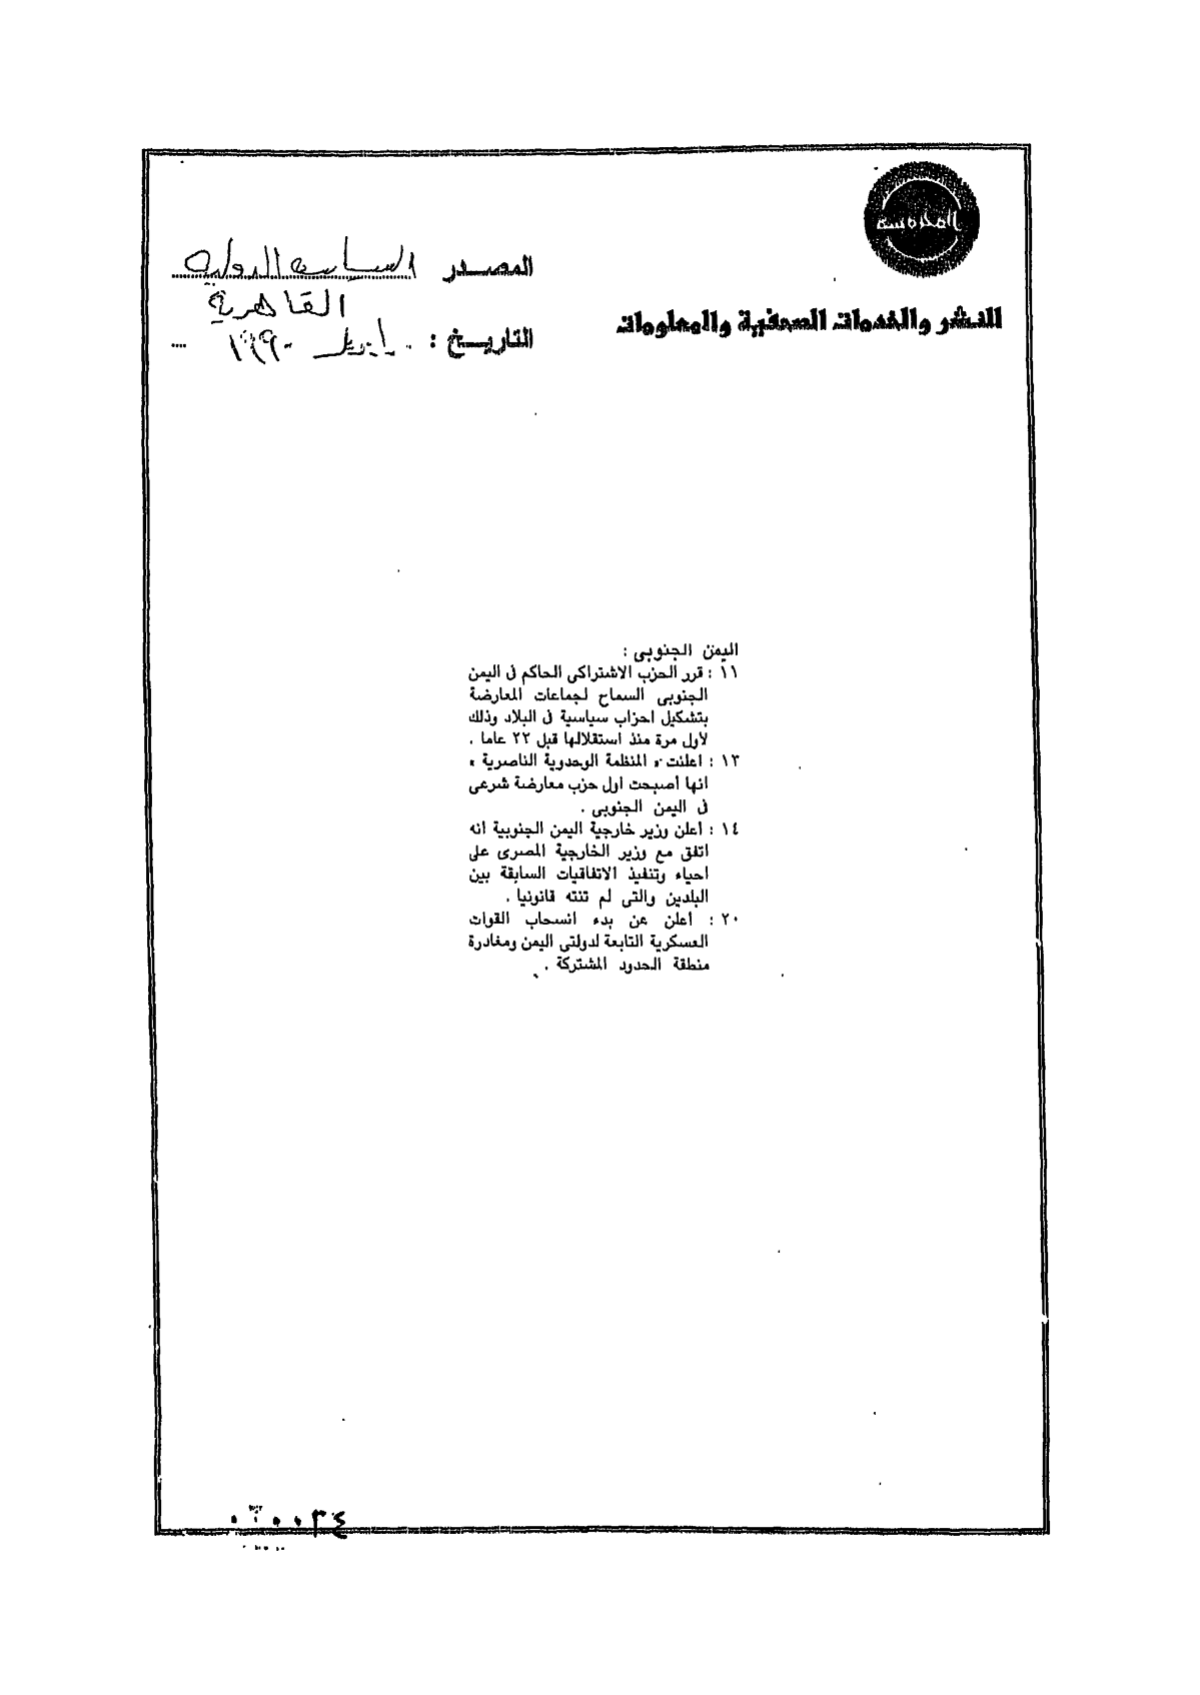 المحروسة
للنشر والخدمات الصحفية والمعلومات
المصدر السياسه الدوليه
القاهرية
التاريخ : ابريل ١٩٩٠
اليمن الجنوبى :
١١ : قرر الحزب الاشتراكى الحاكم فى اليمن
الجنوبى السماح لجماعات المعارضة
بتشكيل احزاب سياسية فى البلاد وذلك
لأول مرة منذ استقلالها قبل ٢٢ عاما .
١٣ : اعلنت « المنظمة الوحدوية الناصرية »
انها أصبحت اول حزب معارضة شرعى
فى اليمن الجنوبى .
١٤ : أعلن وزير خارجية اليمن الجنوبية انه
اتفق مع وزير الخارجية المصرى على
احياء وتنفيذ الاتفاقيات السابقة بين
البلدين والتى لم تنته قانونيا .
٢٠ : أعلن عن بدء انسحاب القوات
العسكرية التابعة لدولتى اليمن ومغادرة
منطقة الحدود المشتركة .